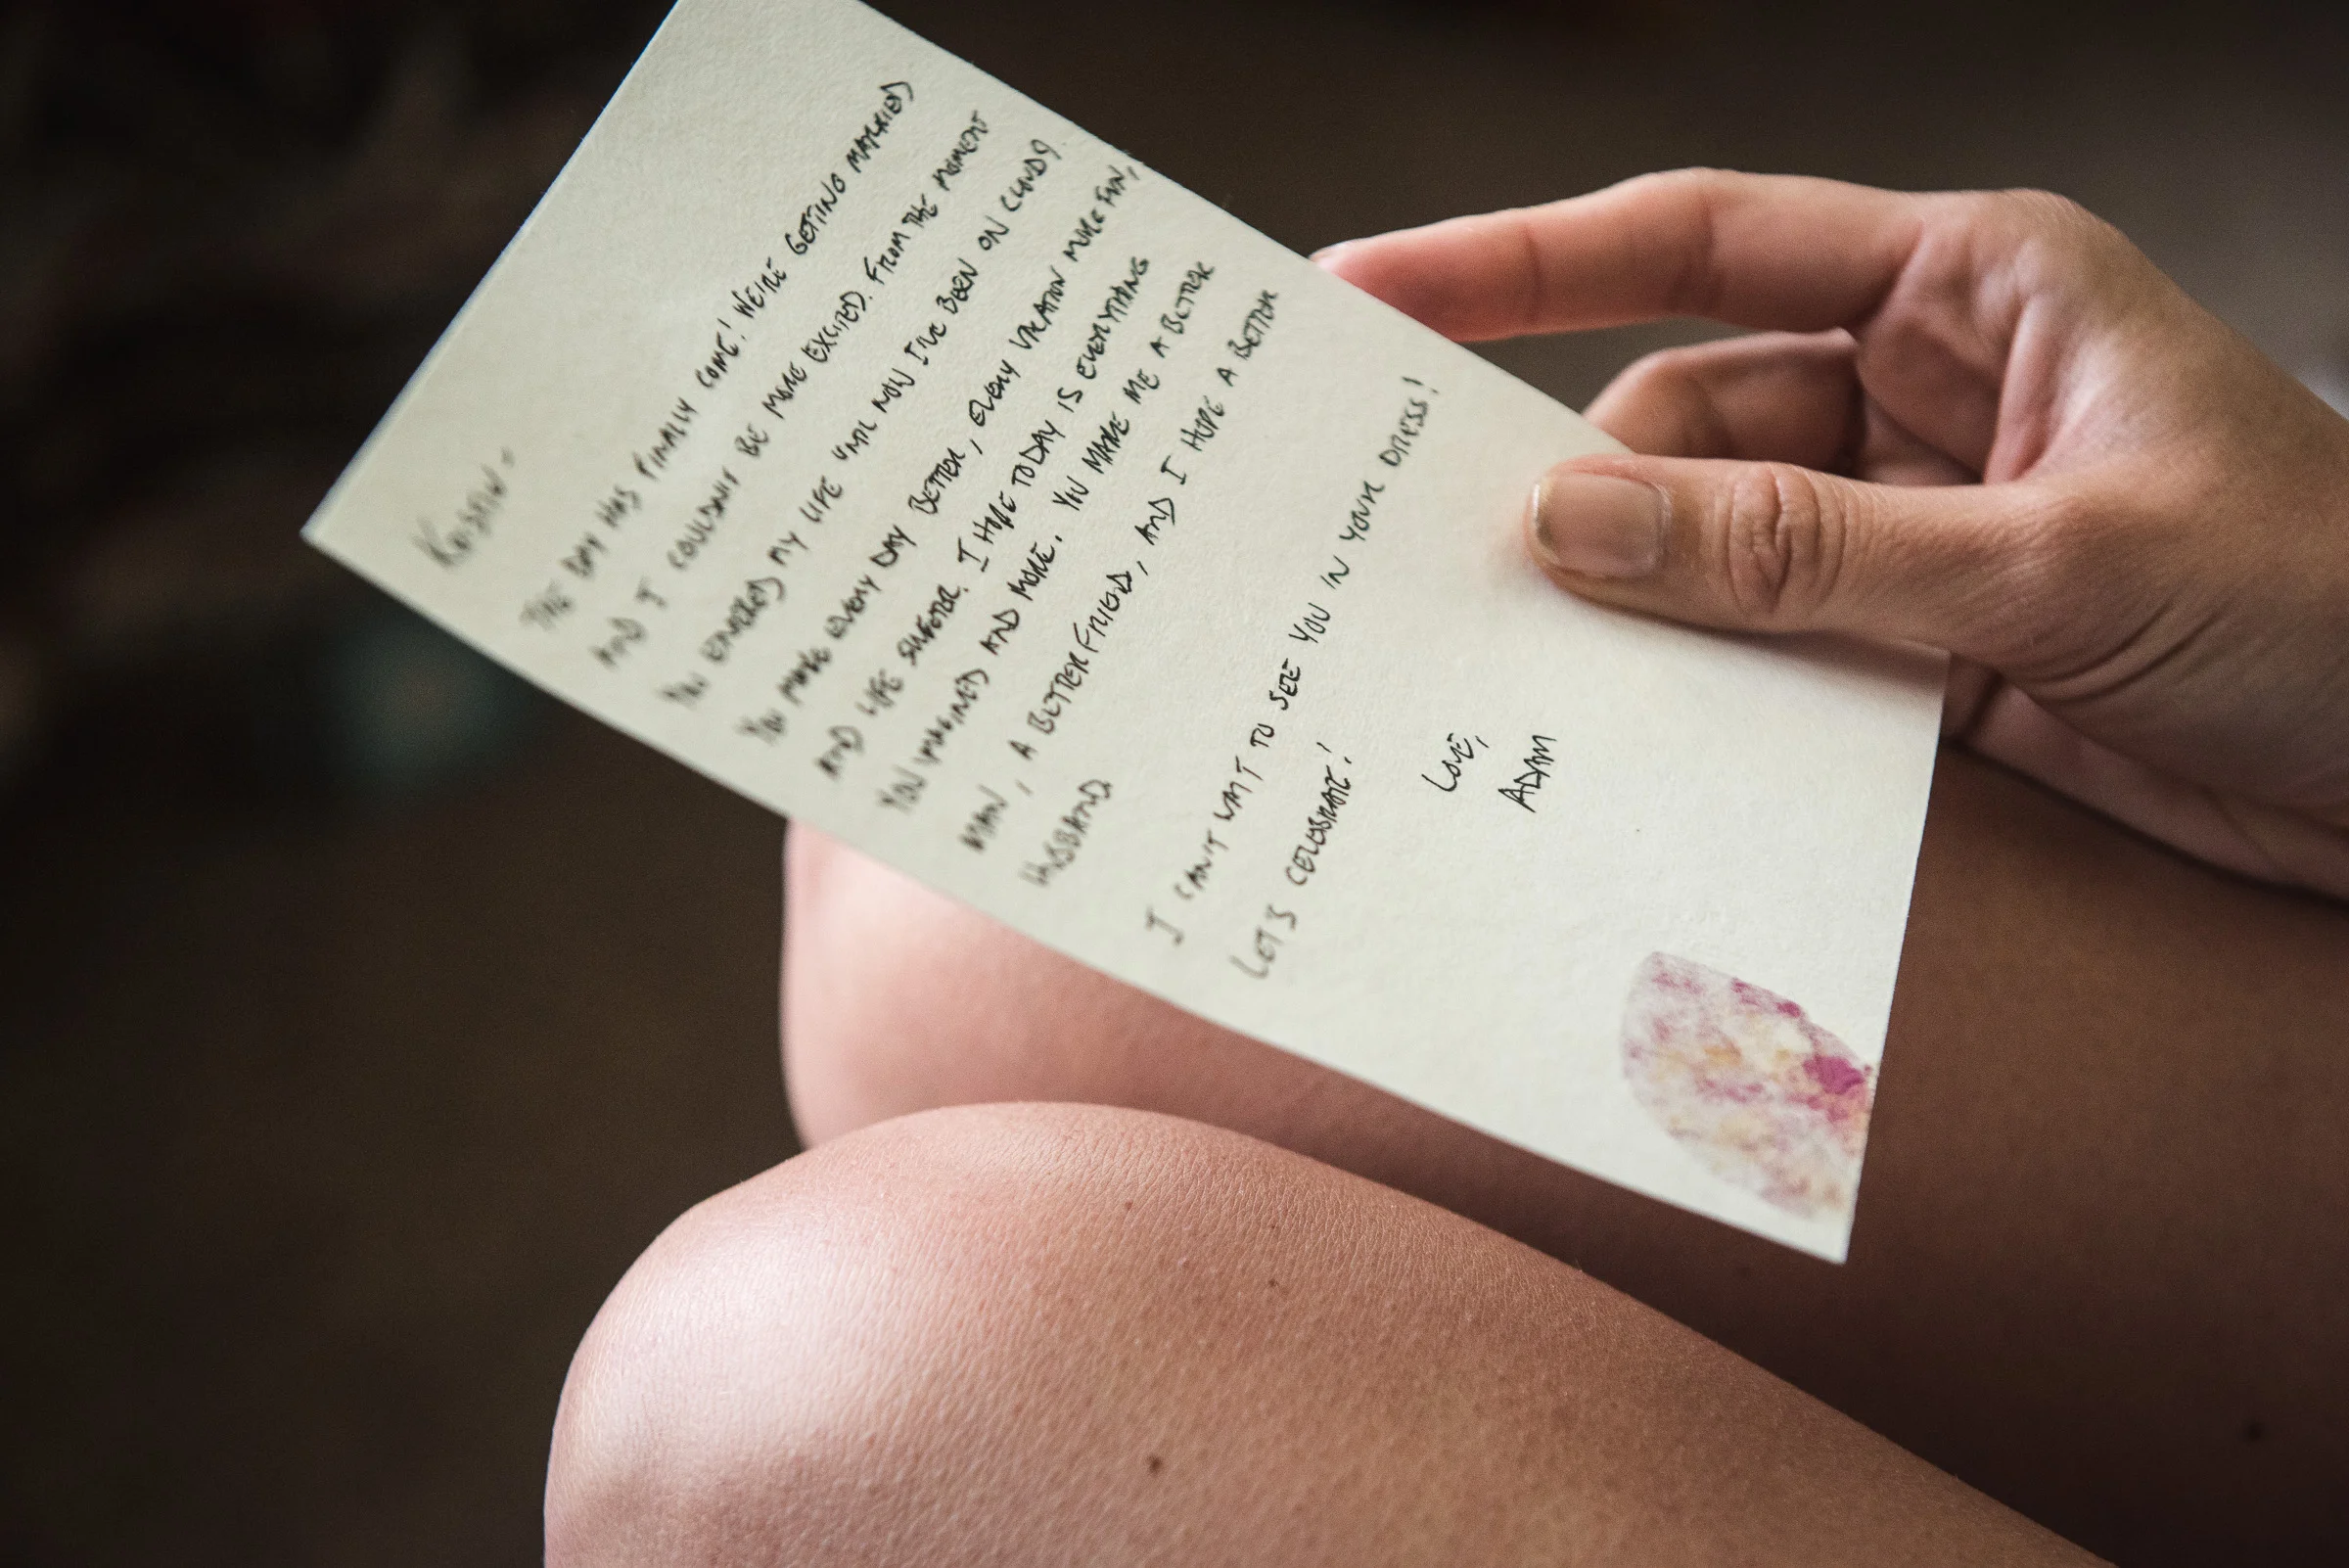 KRISTIN -
THE DAY HAS FINALLY COME! WE'RE GETTING MARRIED
AND I COULDN'T BE MORE EXCITED. FROM THE MOMENT
YOU ENTERED MY LIFE UNTIL NOW I'VE BEEN ON CLOUD 9.
YOU MAKE EVERY DAY BETTER, EVERY VACATION MORE FUN,
AND LIFE SWEETER. I HOPE TODAY IS EVERYTHING
YOU IMAGINED AND MORE. YOU MAKE ME A BETTER
MAN, A BETTER FRIEND, AND I HOPE A BETTER
HUSBAND
I CAN'T WAIT TO SEE YOU IN YOUR DRESS!
LET'S CELEBRATE!
LOVE,
ADAM